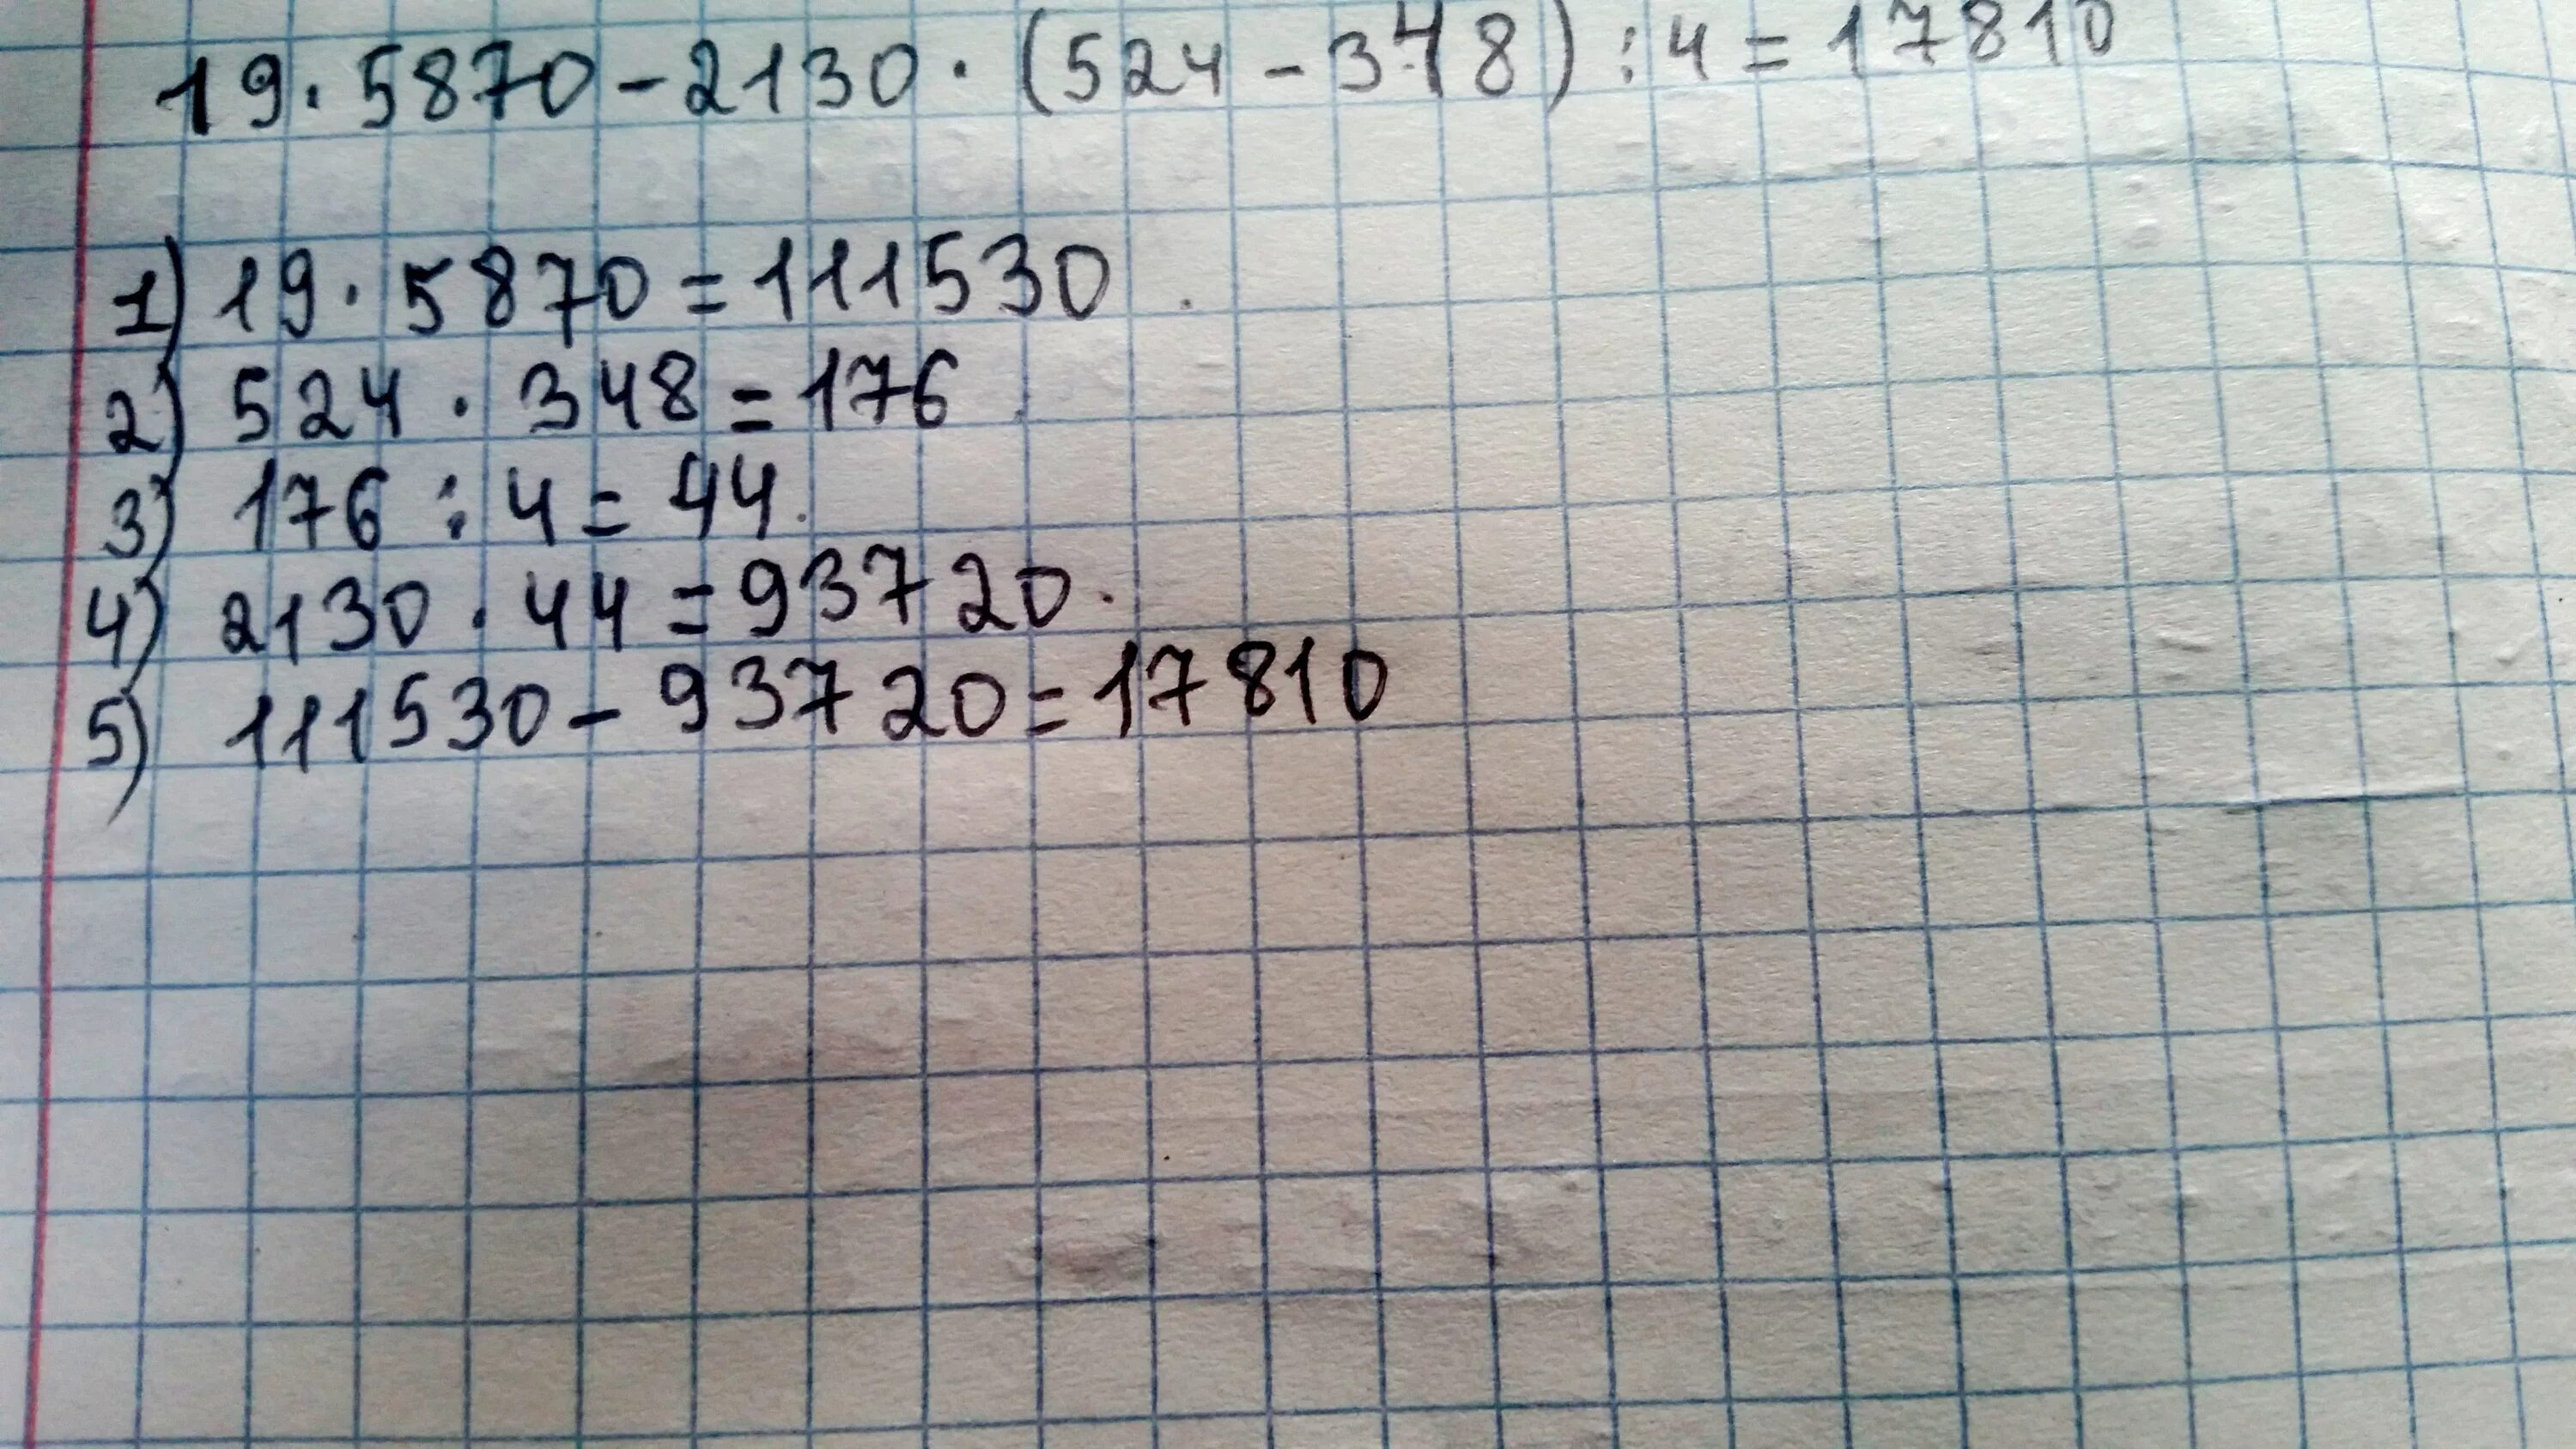 19·5870-2130·(524-348):4=17810
1) 19·5870=111530
2) 524·348=176
3) 176:4=44.
4) 2130·44=93720.
5) 111530-93720=17810